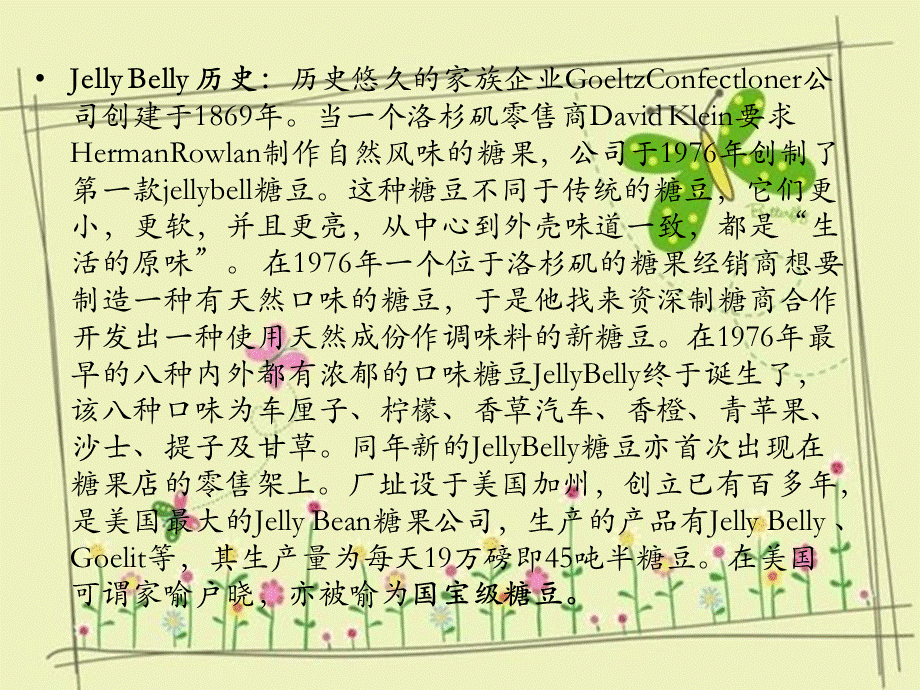 • Jelly Belly 历史：历史悠久的家族企业GoeltzConfectloner公
司创建于1869年。当一个洛杉矶零售商David Klein要求
HermanRowlan制作自然风味的糖果，公司于1976年创制了
第一款jellybell糖豆。这种糖豆不同于传统的糖豆，它们更
小，更软，并且更亮，从中心到外壳味道一致，都是“生
活的原味”。 在1976年一个位于洛杉矶的糖果经销商想要
制造一种有天然口味的糖豆，于是他找来资深制糖商合作
开发出一种使用天然成份作调味料的新糖豆。在1976年最
早的八种内外都有浓郁的口味糖豆JellyBelly终于诞生了，
该八种口味为车厘子、柠檬、香草汽车、香橙、青苹果、
沙士、提子及甘草。同年新的JellyBelly糖豆亦首次出现在
糖果店的零售架上。厂址设于美国加州，创立已有百多年，
是美国最大的Jelly Bean糖果公司，生产的产品有Jelly Belly 、
Goelit等，其生产量为每天19万磅即45吨半糖豆。在美国
可谓家喻户晓，亦被喻为国宝级糖豆。